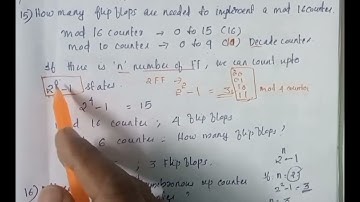 15) How many flip flops are needed to implement a mod 16 counter
mod 16 counter → 0 to 15 (16)
mod 10 counter → 0 to 9 Decade counter
If there is 'n' number of FF, we can count upto
2ⁿ-1 states. 2FF → 2²-1 = 3
00
01
10
11
mod 4 counter
2⁴-1 = 15
mod 16 counter; 4 flip flops
6 counter; How many flip flops
; 3 flip flops.
2ⁿ-1
If n=2
2²-1=3
16)
synchronous up counter